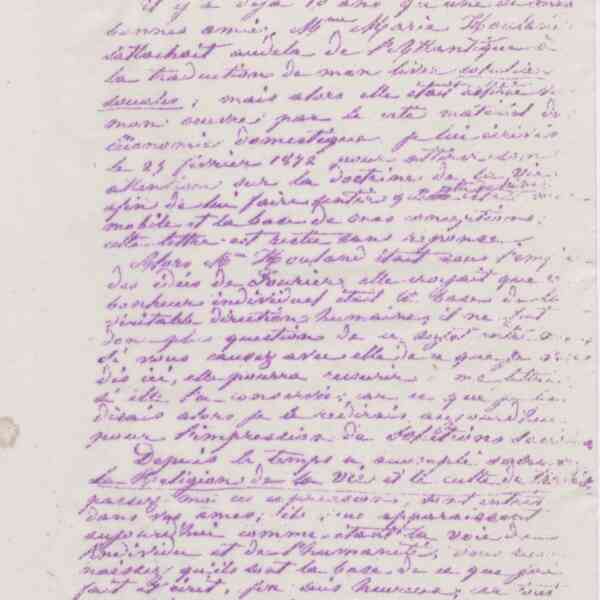 il y a déjà 10 ans qu'une de mes
bonnes amies, Mme Marie Howland
s'attachait au delà de l'Atlantique à
la traduction de mon livre solutions
sociales, mais alors elle était
mon œuvre par le côté matériel de
l'économie domestique, je lui écrivis
le 23 février 1872 pour attirer son
attention sur la doctrine de la vie
afin de lui faire sentir que
mobile et la base de mes conceptions.
cette lettre est restée sans réponse.
Alors Mme Howland était sous l'empire
des idées de Fourier, elle croyait que le
bonheur individuel était la base de la
véritable direction humaine, il ne fut
donc plus question de ce sujet entre
Si vous causez avec elle de ce que je vous
dis ici, elle pourra recourir à ma lettre
si elle l'a conservée, car ce que je lui
disais alors je le redirais aujourd'hui
pour l'impression de Solutions sociales
Depuis le temps a
La Religion de la vie et le culte de
passez moi ces expressions, sont entrés
dans vos âmes; ils vous apparaissent
aujourd'hui comme étant la voie de
l'individu et de l'humanité, vous
naissez qu'ils sont la base de ce que j'ai
fait et écrit, j'en suis heureux, car